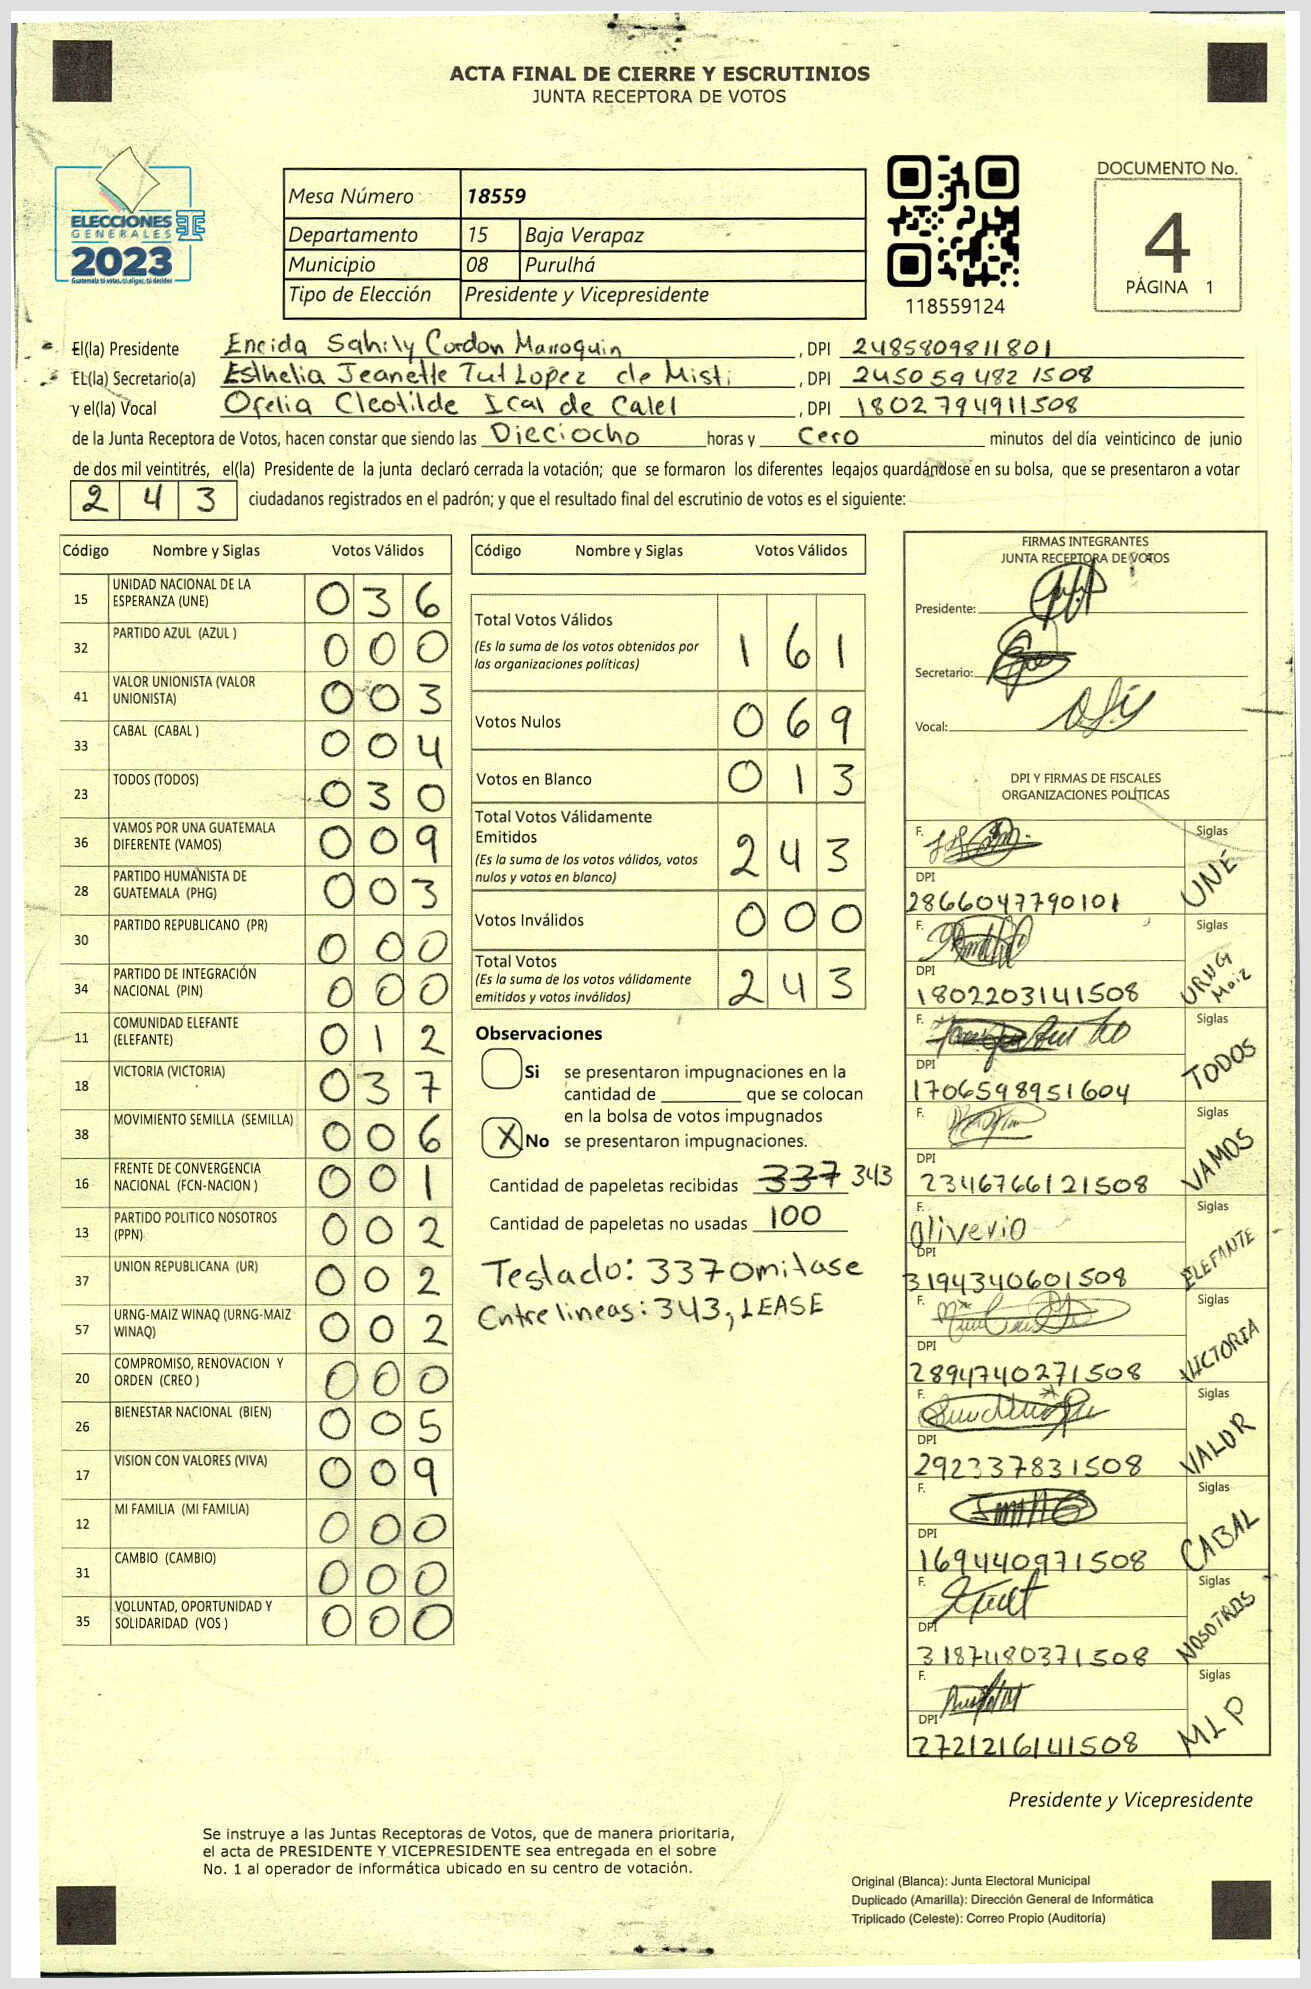 ACTA FINAL DE CIERRE Y ESCRUTINIOS
JUNTA RECEPTORA DE VOTOS
ELECCIONES
GENERALES
2023
Guatemala tú votas, tú eliges, tú decides
Mesa Número 18559
Departamento 15 Baja Verapaz
Municipio 08 Purulhá
Tipo de Elección Presidente y Vicepresidente
118559124
DOCUMENTO No.
4
PÁGINA 1
El(la) Presidente Encida Sahily Cordon Marroquin, DPI 2485809811801
EL(la) Secretario(a) Esthelia Jeanette Tut Lopez de Misti, DPI 245059482 1508
y el(la) Vocal Ofelia Cleotilde Ical de Calel, DPI 1802794911508
de la Junta Receptora de Votos, hacen constar que siendo las Dieciocho horas y Cero minutos del día veinticinco de junio
de dos mil veintitrés, el(la) Presidente de la junta declaró cerrada la votación; que se formaron los diferentes legajos guardándose en su bolsa, que se presentaron a votar
243 ciudadanos registrados en el padrón; y que el resultado final del escrutinio de votos es el siguiente:
Código Nombre y Siglas Votos Válidos
15 UNIDAD NACIONAL DE LA ESPERANZA (UNE) 036
32 PARTIDO AZUL (AZUL ) 000
41 VALOR UNIONISTA (VALOR UNIONISTA) 003
33 CABAL (CABAL ) 004
23 TODOS (TODOS) 030
36 VAMOS POR UNA GUATEMALA DIFERENTE (VAMOS) 009
28 PARTIDO HUMANISTA DE GUATEMALA (PHG) 003
30 PARTIDO REPUBLICANO (PR) 000
34 PARTIDO DE INTEGRACIÓN NACIONAL (PIN) 000
11 COMUNIDAD ELEFANTE (ELEFANTE) 012
18 VICTORIA (VICTORIA) 037
38 MOVIMIENTO SEMILLA (SEMILLA) 006
16 FRENTE DE CONVERGENCIA NACIONAL (FCN-NACION ) 001
13 PARTIDO POLITICO NOSOTROS (PPN) 002
37 UNION REPUBLICANA (UR) 002
57 URNG-MAIZ WINAQ (URNG-MAIZ WINAQ) 002
20 COMPROMISO, RENOVACION Y ORDEN (CREO ) 000
26 BIENESTAR NACIONAL (BIEN) 005
17 VISION CON VALORES (VIVA) 009
12 MI FAMILIA (MI FAMILIA) 000
31 CAMBIO (CAMBIO) 000
35 VOLUNTAD, OPORTUNIDAD Y SOLIDARIDAD (VOS ) 000
Código Nombre y Siglas Votos Válidos
Total Votos Válidos 161
(Es la suma de los votos obtenidos por
las organizaciones políticas)
Votos Nulos 069
Votos en Blanco 013
Total Votos Válidamente
Emitidos 243
(Es la suma de los votos válidos, votos
nulos y votos en blanco)
Votos Inválidos 000
Total Votos 243
(Es la suma de los votos válidamente
emitidos y votos inválidos)
Observaciones
Si se presentaron impugnaciones en la
cantidad de ________ que se colocan
en la bolsa de votos impugnados
X No se presentaron impugnaciones.
Cantidad de papeletas recibidas 337 343
Cantidad de papeletas no usadas 100
Testado: 337 Omitase
Entre lineas: 343, LEASE
FIRMAS INTEGRANTES
JUNTA RECEPTORA DE VOTOS
Presidente:
Secretario:
Vocal:
DPI Y FIRMAS DE FISCALES
ORGANIZACIONES POLÍTICAS
F. Siglas
DPI UNE
2866047790101
F. Siglas
DPI URNG Maiz
1802203141508
F. Siglas
DPI TODOS
1706598951604
F. Siglas
DPI VAMOS
2346766121508
F. Oliverio Siglas
DPI ELEFANTE
3194340601508
F. Siglas
DPI VICTORIA
2894740271508
F. Siglas
DPI VALOR
292337831508
F. Siglas
DPI CABAL
169440971508
F. Siglas
DPI NOSOTROS
3187480371508
F. Siglas
DPI MLP
2721216141508
Presidente y Vicepresidente
Se instruye a las Juntas Receptoras de Votos, que de manera prioritaria,
el acta de PRESIDENTE Y VICEPRESIDENTE sea entregada en el sobre
No. 1 al operador de informática ubicado en su centro de votación.
Original (Blanca): Junta Electoral Municipal
Duplicado (Amarilla): Dirección General de Informática
Triplicado (Celeste): Correo Propio (Auditoría)